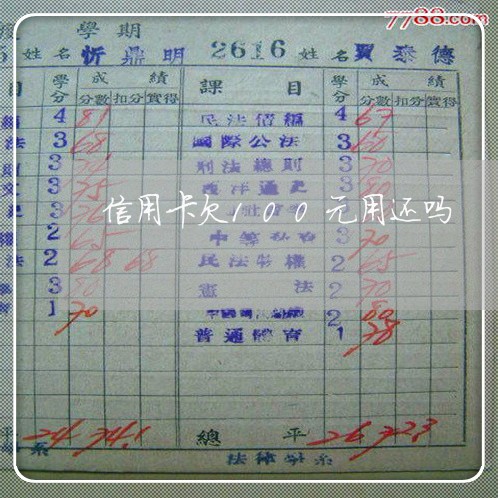 7788.com
學期
姓名 忻鼎明 2616 姓名 賈泰德
目 學分 成績 課目 學分 成績
分數 扣分 實得 分數 扣分 實得
4 81 民法債編 4 67
法 3 68 國際公法 3 60
3 刑法總則 3 70
3 75 西洋通史 3 80
信用卡欠100元用还吗
2 65 3 70
法 2 68 68 民法物權 2 65
3 80 憲法 2 70
1 70 2 80
普通體育 1 78
平 24 74.1 總平 26 72.3
系 法律學系